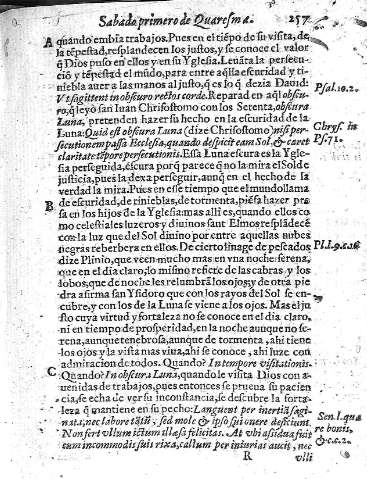 Sabado primero de Quaresma. 257
A quando embia trabajos. Pues en el tiẽpo de su visita, de
la tẽpestad, resplandecen los justos, y se conoce el valor
q̃ Dios puso en ellos y en su Yglesia. Leuãta la persecu-
ció y tẽpestad el mũdo, para entre aq̃lla escuridad y ti-
niebla auer a las manos al justo, q̃ es lo q̃ dezia Dauid:
Vt sagittent in obscuro rectos corde. Reparad en aq̃l obscu-
ro, q̃ leyò san Iuan Chrisostomo con los Setenta, obscura
Luna, pretenden hazer su hecho en la escuridad de la
Luna: Quid est obscura Luna (dize Chrisostomo) nisi per-
secutionem passa Ecclesia, quando despicit eam Sol, & caret
claritate tẽpore persecutionis. Essa Luna escura es la Ygle-
sia perseguida, escura porq̃ parece q̃ no la mira el Sol de
justicia, pues la dexa perseguir, aunq̃ en el hecho de la
verdad la mira. Pues en esse tiempo que el mundo llama
B de escuridad, de tinieblas, de tormenta, piẽsa hazer pre
sa en los hijos de la Yglesia mas alli es, quando ellos co
mo celestiales luzeros y diuinos sant Elmos resplãdecẽ
con la luz que del Sol diuino por entre aquellas nubes
negras reberbera en ellos. De cierto linage de pescados
dize Plinio, que veen mucho mas en vna noche serena,
que en el dia claro, lo mismo refiere de las cabras y los
lobos, que de noche les relumbrã los ojos; y de otra pie
dra afirma san Ysidoro que con los rayos del Sol se en-
cubre, y con los de la Luna se viene a los ojos. Mas el ju
sto cuya virtud y fortaleza no se conoce en el dia claro,
ni en tiempo de prosperidad, en la noche aunque no se-
rena, aunque tenebrosa, aunque de tormenta, ahi tiene
los ojos y la vista mas viua, ahi se conoce, ahi luze con
admiracion de todos. Quando? In tempore visitationis.
C Quando? In obscura Luna, quando le visita Dios con a-
uenidas de trabajos, pues entonces se prueua su pacien
cia, se echa de ver su inconstancia, se descubre la forta-
leza q̃ mantiene en su pecho: Languent per inertiã sagi-
nata, nec labore tãtũ, sed mole & ipso sui onere desiciunt.
Non fert vllum ictum illæsa felicitas. At vbi assidua fuit
cum incommodis suis rixa, callum per iniurias aucit, nec
R vlli
Psal. 10. 2.
Chrys. in
Ps. 71.
Sen. l. qua
re bonis.
& c. 2.